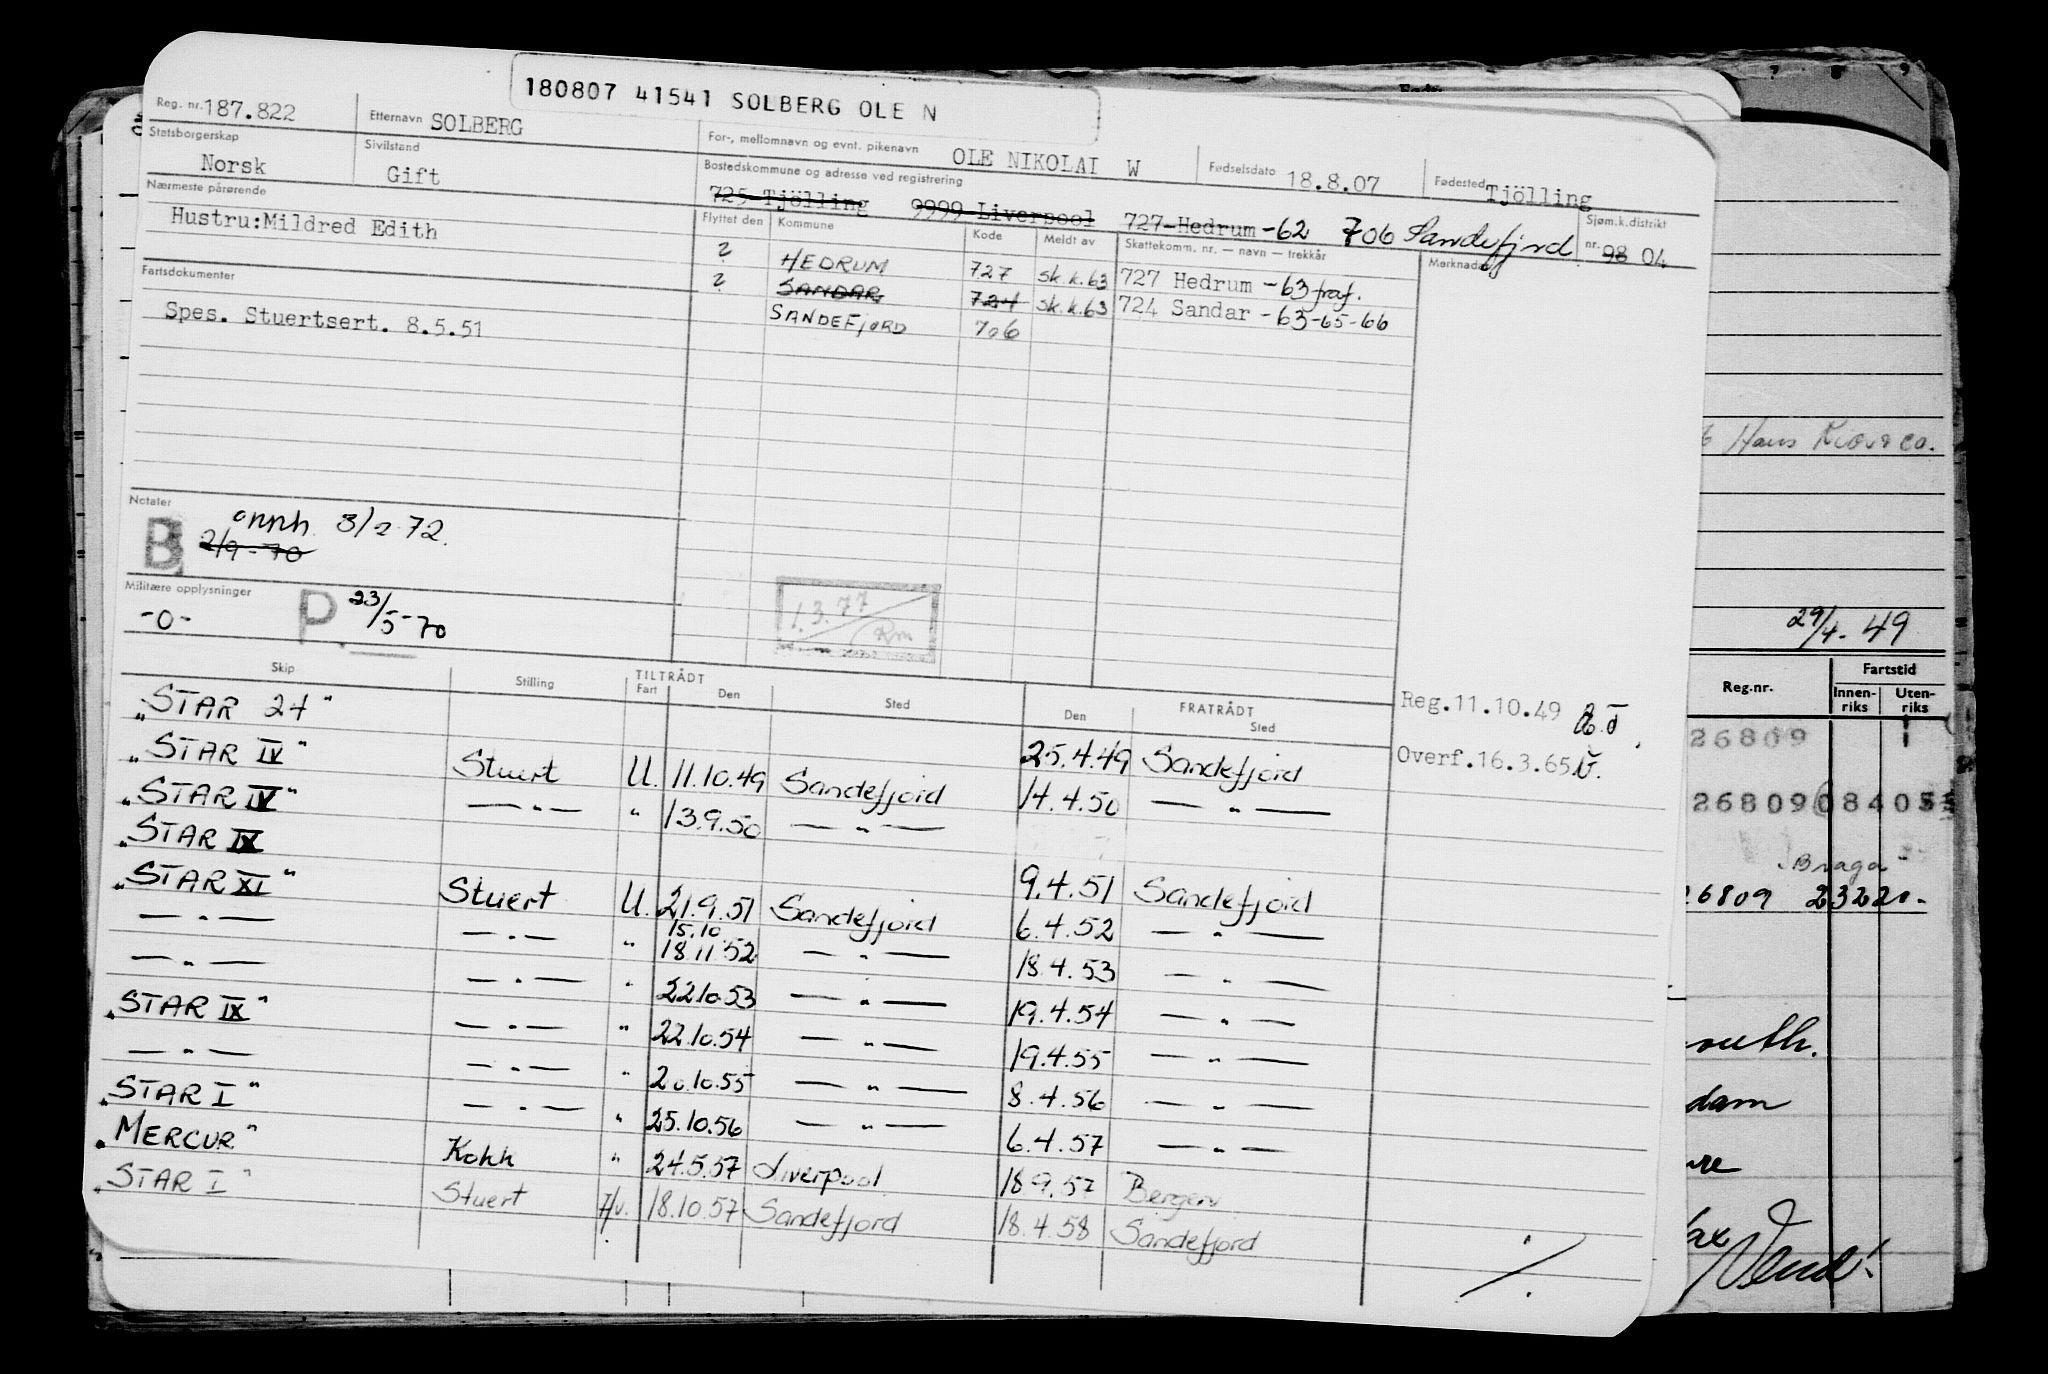 180807 41541 SOLBERG OLE N
Reg. nr. 187.822 Etternavn SOLBERG For-, mellomnavn og evnt. pikenavn OLE NIKOLAI W Fødselsdato 18.8.07 Fødested Tjölling
Statsborgerskap Norsk Sivilstand Gift Bostedskommune og adresse ved registrering
725 Tjölling 9999 Liverpool 727 Hedrum -62 706 Sandefjord Sjøm.k.distrikt nr. 98 04
Nærmeste pårørende
Hustru: Mildred Edith
Flyttet den Kommune Kode Meldt av Skattekomm. nr. — navn — trekkår Merknader
? HEDRUM 727 sk.k.63 727 Hedrum -63 fraf.
? SANDAR 724 sk.k.63 724 Sandar -63-65-66
SANDEFJORD 706
Fartsdokumenter
Spes. Stuertsert. 8.5.51
Hans Kiær & Co.
Notater
B onnh. 3/2 72.
2/9-70
Militære opplysninger
-0- P. 23/5-70
1.3.77
Rm
29/4. 49
Skip Stilling TILTRÅDT Fart Den Sted FRATRÅDT Den Sted
Reg. 11.10.49
Overf. 16.3.65
"STAR 24" 25.4.49 Sandefjord
"STAR IV" Stuert U. 11.10.49 Sandefjord 14.4.50 — " —
"STAR IV" — " — " 13.9.50 — " —
"STAR IX 9.4.51 Sandefjord
"STAR XI" Stuert U. 21.9.51 Sandefjord 6.4.52 — " —
— " — — " — " 15.10. 18.11.52 — " — 18.4.53 — " —
— " — — " — " 22.10.53 — " — 19.4.54 — " —
"STAR IX" — " — " 22.10.54 — " — 19.4.55 — " —
— " — — " — " 20.10.55 — " — 8.4.56 — " —
"STAR I" — " — " 25.10.56 — " — 6.4.57 — " —
"MERCUR" Kokk " 24.5.57 Liverpool 18.9.57 Bergen
"STAR I" Stuert I/v. 18.10.57 Sandefjord 18.4.58 Sandefjord
Reg.nr. Fartstid
Innenriks Utenriks
26809
26809 08405
"Braga"
26809 23220.-
outh.
dam